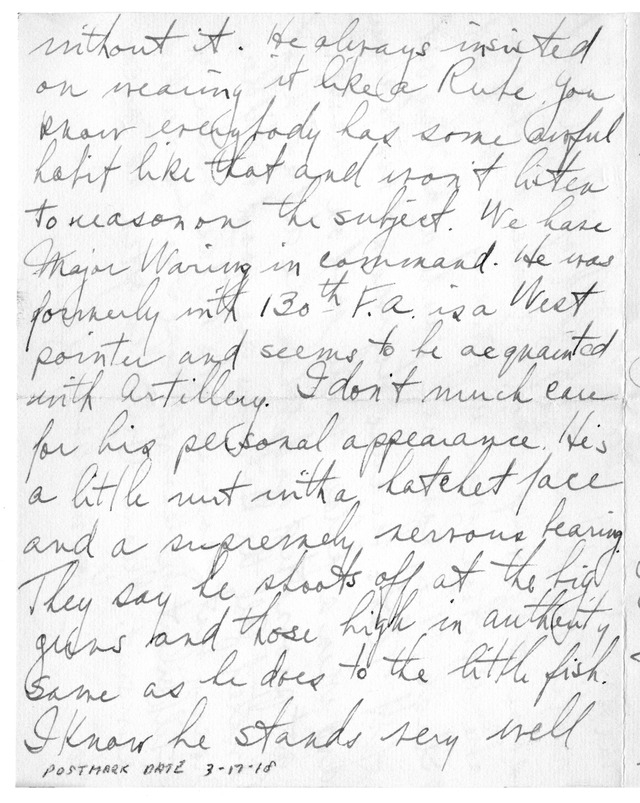 without it. He always insisted
on wearing it like a Rube. You
know everybody has some awful
habit like that and won't listen
to reason on the subject. We have
Major Waring in command. He was
formerly with 130th F.A. is a West
pointer and seems to be acquainted
with Artillery. I don't much care
for his personal appearance. He's
a little nut with a hatchet face
and a supremely nervous bearing.
They say he shoots off at the big
guns and those high in authority
same as he does to the little fish.
I know he stands very well
POSTMARK DATE 3-17-18